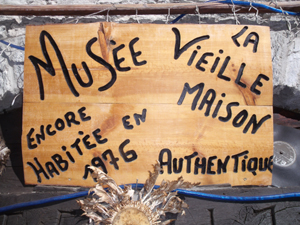 MUSÉE
LA
VIEILLE
MAISON
ENCORE
HABITÉE EN
1976
AUTHENTIQUE